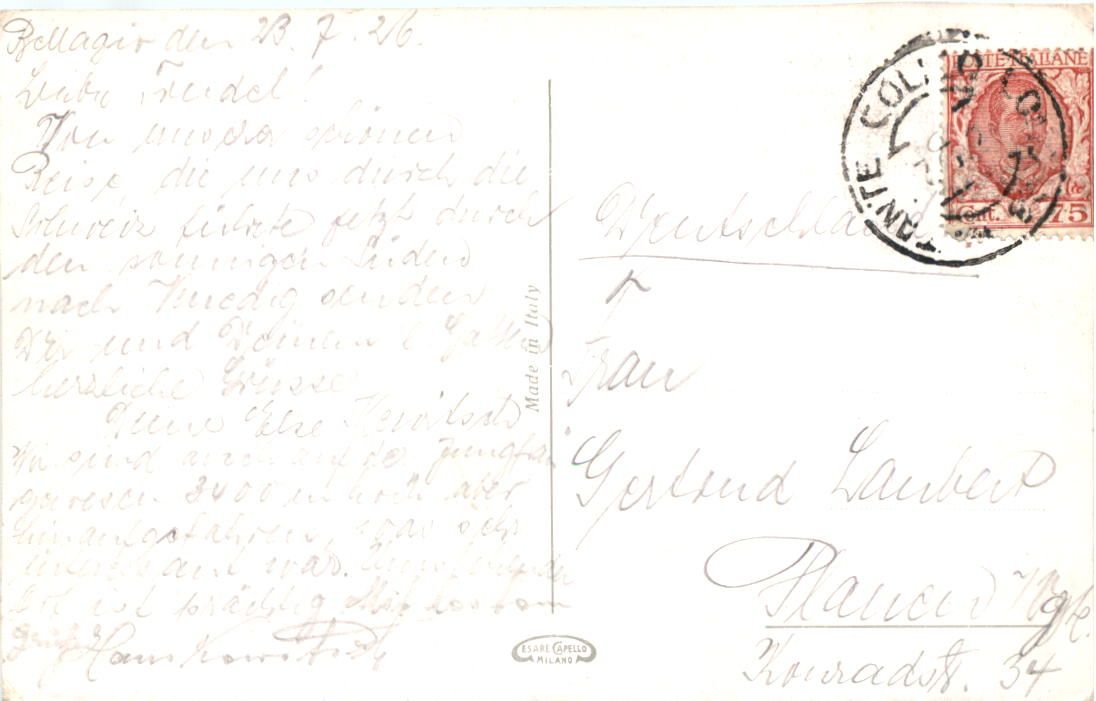 Bellagio den 23.7.26.
Liebe Trudel!
Von unserer schönen
Reise, die uns durch die
Schweiz führte jetzt durch
den sonnigen Süden
nach Venedig senden
Dir und Deinem l. Gatten
herzliche Grüsse
Deine Else
Wir sind auch auf der Jungfrau
gewesen 3400 m hoch aber
hinaufgefahren, was sehr
interessant war.
ist prächtig Mit bestem
Gruß
Hans
Made in Italy
CESARE CAPELLO
MILANO
POSTE ITALIANE
Cent. 75
Deutschland
Frau
Gertrud Laubert
Plauen Vogtl.
Konradstr. 34